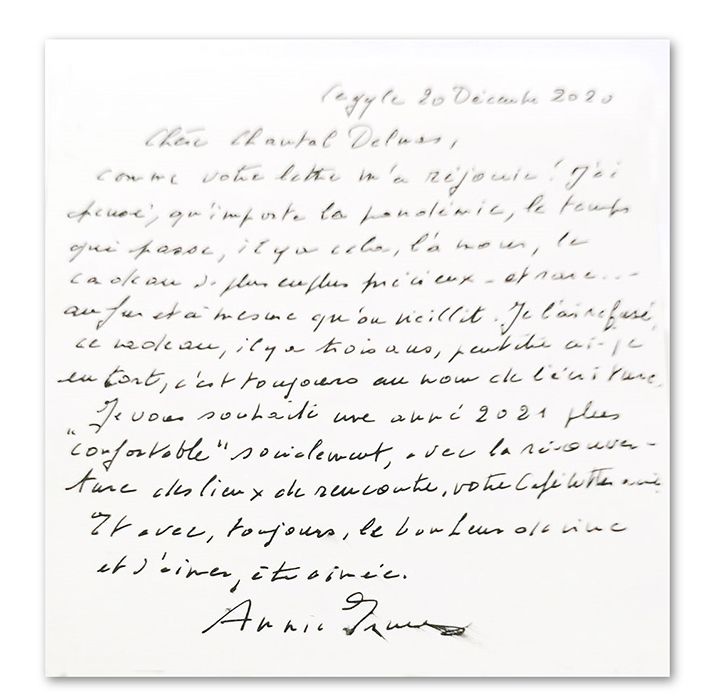 Cergy le 20 Décembre 2020
Chère Chantal Delmas,
comme votre lettre m'a réjouie ! J'ai
pensé, qu'importe la pandémie, le temps
qui passe, il y a cela, là nous, le
cadeau de plus en plus précieux - et rare...
au fur et à mesure qu'on vieillit. Je l'ai refusé,
ce cadeau, il y a trois ans, peut-être ai-je
eu tort, c'est toujours au nom de l'écriture.
"Je vous souhaite une année 2021 plus
confortable" socialement, avec la réouver-
ture des lieux de rencontre, votre Café littéraire
Et avec, toujours, le bonheur de vivre
et d'aimer, être aimée.
Annie